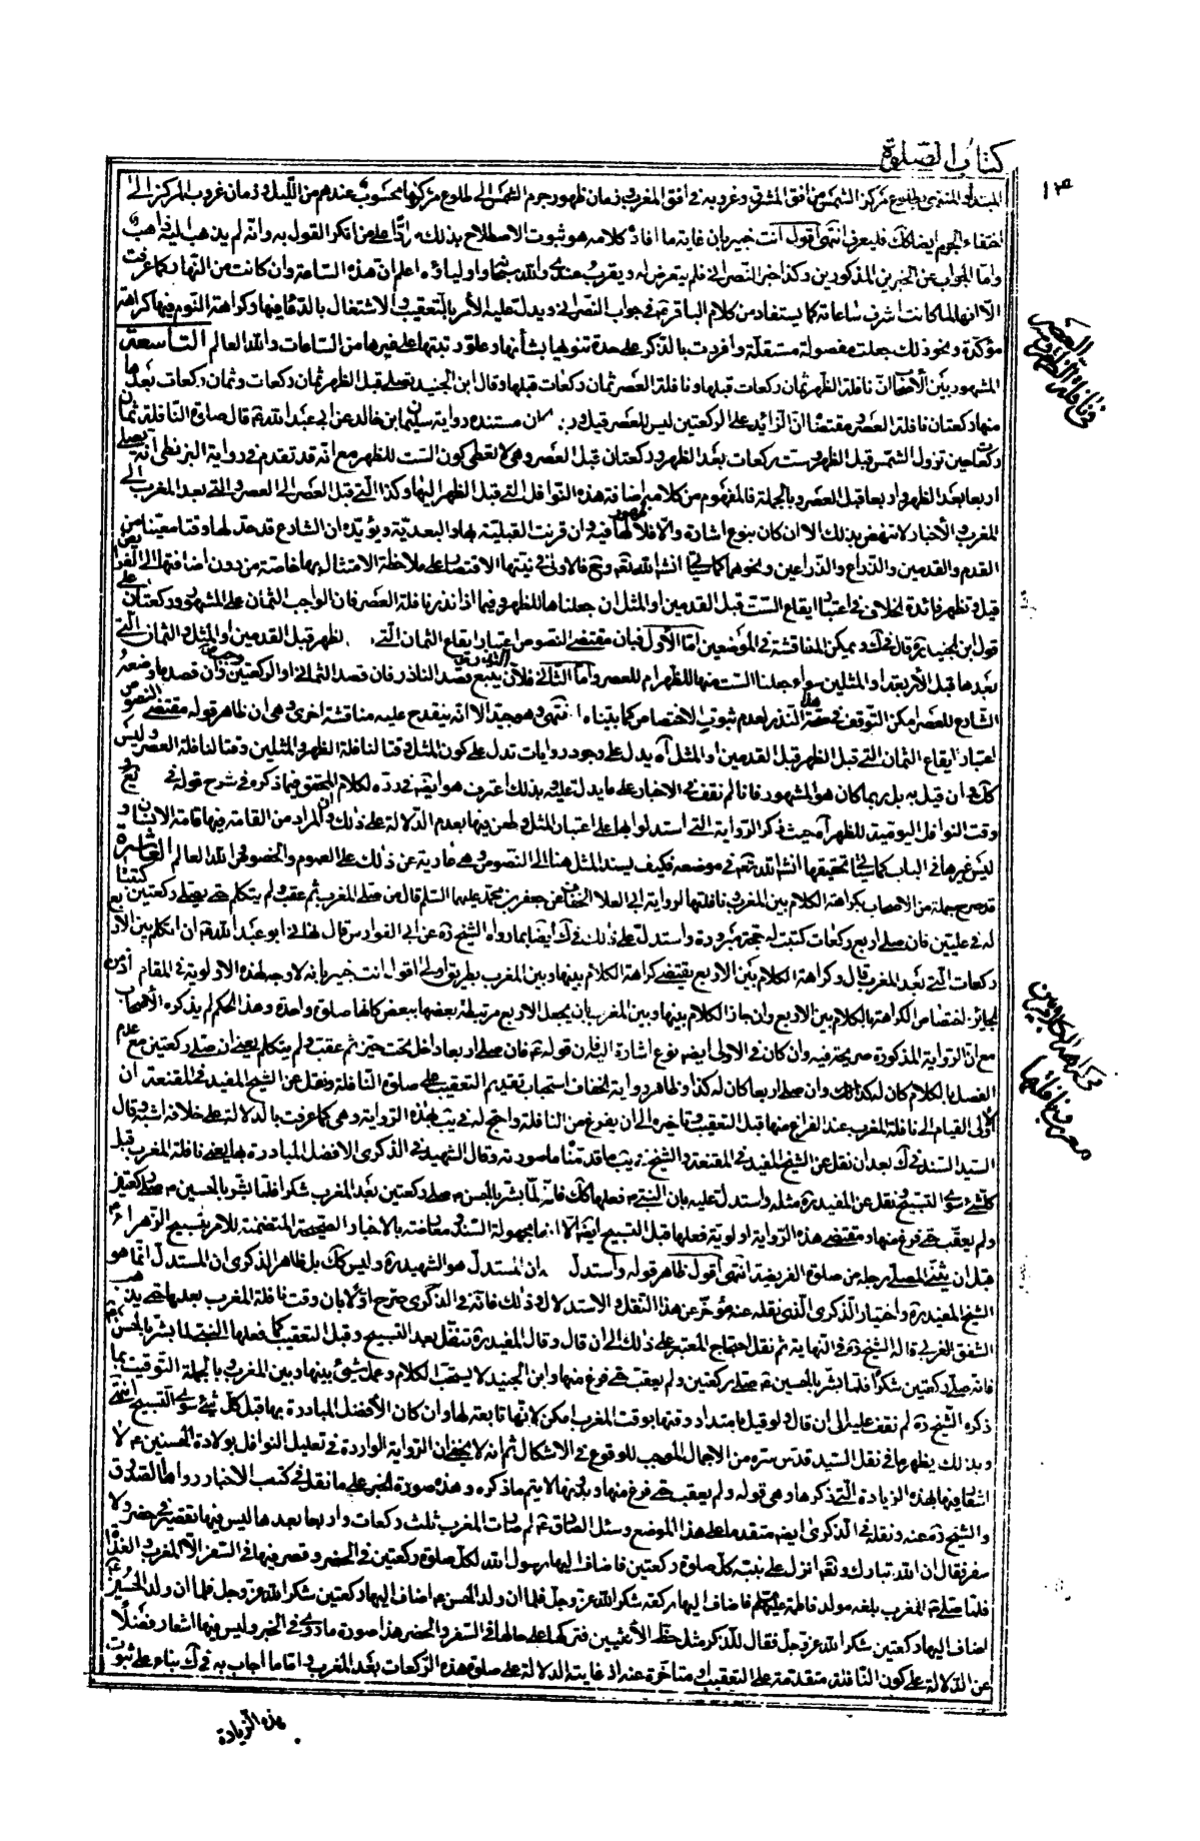 كتاب الصلوة
١٣
المبتدأ والمنتهى بطلوع مركز الشمس من افق المشرق وغروبه في افق المغرب زمان ظهور جرم الشمس الى طلوع مركزها محسوب عندهم من الليل وزمان غروب المركز الى
اختفاء الجرم ايضا كك فليعرف انتهى اقول انت خبير بان غاية ما افاد كلامه هو ثبوت الاصطلاح بذلك ردا على من انكر القول به وانه لم يذهب اليه ذاهب
واما الجواب عن الخبرين المذكورين وكذا خبر النصراني فلم يتعرض له ويقرب عندي والله سبحانه واولياؤه اعلم ان هذه الساعة وان كانت من النهار كما عرفت
الا انها لما كانت اشرف ساعاته كما يستفاد من كلام الباقر ع في جواب النصراني ويدل عليه الامر بالتعقيب والاشتغال بالدعاء فيها وكراهة النوم فيها كراهة
مؤكدة ونحو ذلك جعلت مفصولة مستقلة وافردت بالذكر على حدة تنويها بشأنها وعلو رتبتها على غيرها من الساعات والله العالم التاسعة
المشهور بين الاصحاب ان نافلة الظهر ثمان ركعات قبلها ونافلة العصر ثمان ركعات قبلها وقال ابن الجنيد تصلى قبل الظهر ثمان ركعات وثمان ركعات بعدها
منها ركعتان نافلة العصر ومقتضاه ان الزائد على الركعتين ليس للعصر قيل و كان مستنده رواية سليمان ابن خالد عن ابي عبد الله ع قال صلوة النافلة ثمان
ركعات حين تزول الشمس قبل الظهر وست ركعات بعد الظهر وركعتان قبل العصر وهي لا تعطي كون الست للظهر مع انه قد تقدم في رواية البزنطي انه يصلى
اربعا بعد الظهر واربعا قبل العصر وبالجملة فالمفهوم من كلامهم اضافة هذه النوافل التي قبل الظهر اليها وكذا التي قبل العصر الى العصر والتي بعد المغرب الى
المغرب والاخبار لا تنهض بذلك الا ان كان بنوع اشارة والا فلا ظهور لها فيه وان قرنت القبلية بها والبعدية ويؤيده ان الشارع قد حد لها وقتا معينا من
القدم والقدمين والذراع والذراعين ونحوهما كما سيأتي انشاء الله تعالى وحينئذ فالاولى في نيتها الاقتصار على ملاحظة الامتثال بها خاصة من دون اضافتها الى الفرائض
قيل وتظهر فائدة الخلاف في اعتبار ايقاع الست قبل القدمين او المثل ان جعلناها للظهر وفيما اذا نذر نافلة العصر فان الواجب الثمان على المشهور وركعتان على
قول ابن الجنيد ره قال في ك ويمكن المناقشة في الموضعين اما الاول فبان مقتضى النصوص اعتبار ايقاع الثمان التي قبل الظهر قبل القدمين او المثل والثمان التي
بعدها قبل الاربعة او المثلين سواء جعلنا الست منها للظهر ام للعصر واما الثاني فلان النذر يتبع قصد الناذر فان قصد الثماني او الركعتين وجب وان قصد ما وضعه
الشارع للعصر امكن التوقف في صحة هذا النذر لعدم ثبوت الاختصاص كما بيناه انتهى وهو جيد الا انه ينقدح عليه مناقشة اخرى وهي ان ظاهر قوله مقتضى النصوص
اعتبار ايقاع الثمان التي قبل الظهر قبل القدمين او المثل آه يدل على وجود روايات تدل على كون المثل وقتا لنافلة الظهر والمثلين وقتا لنافلة العصر وليس
كك وان قيل به بل ربما كان هو المشهور فانا لم نقف في الاخبار على ما يدل عليه وبذلك اعترف هو ايضا في رده لكلام المحقق فيما ذكره في شرح قوله في
وقت النوافل اليومية للظهر آه حيث ذكر الرواية التي استدلوا بها على اعتبار المثل وطعن فيها بعدم الدلالة على ذلك وان المراد من القامة فيها قامة الانسان و
ليس غيرها في الباب كما سيأتي تحقيقه انشاء الله تعالى في موضعه فكيف يسند المثل هنا الى النصوص وهي عارية عن ذلك على العموم والخصوص والله العالم العاشرة
قد صرح جملة من الاصحاب بكراهة الكلام بين المغرب ونافلتها لرواية ابي العلا الخفاف عن جعفر بن محمد عليهما السلم قال من صلى المغرب ثم عقب ولم يتكلم حتى يصلي ركعتين كتبتا
له في عليين فان صلى اربع ركعات كتبت له حجة مبرورة واستدل على ذلك في ك ايضا بما رواه الشيخ ره عن ابي الفوارس قال نهاني ابو عبد الله ع ان اتكلم بين الاربع
ركعات التي بعد المغرب قال وكراهة الكلام بين الاربع يقتضي كراهة الكلام بينها وبين المغرب بطريق اولى اقول انت خبير بانه لا وجه لهذه الاولوية في المقام اذ من
الجائز اختصاص الكراهة بالكلام بين الاربع وان جاز الكلام بينها وبين المغرب بان يجعل الاربع مرتبطة بعضها ببعض كانها صلوة واحدة وهذا الحكم لم يذكره الاصحاب
مع ان الرواية المذكورة صريحة فيه وان كان في الاولى ايضا نوع اشارة اليه فان قوله ع فان صلى اربعا داخل تحت حيز ثم عقب ولم يتكلم يعني ان صلى ركعتين مع عدم
الفصل بالكلام كان له كذلك وان صلى اربعا كان له كذا وظاهر رواية الخفاف استحباب تقديم التعقيب على صلوة النافلة ونقل عن الشيخ المفيد في المقنعة ان
الاولى القيام الى نافلة المغرب عند الفراغ منها قبل التعقيب وتاخيره الى ان يفرغ من النافلة واحتج له في يب بهذه الرواية وهي كما عرفت بالدلالة على خلافه اشبه وقال
السيد السند في ك بعد ان نقل عن الشيخ المفيد في المقنعة والشيخ في يب ما قدمناه ما صورته وقال الشهيد في الذكرى الافضل المبادرة بها يعني نافلة المغرب قبل
كل شيء سوى التسبيح ونقل عن المفيد ره مثله واستدل عليه بان النبي ص فعلها كك فانه لما بشر بالحسن ع صلى ركعتين بعد المغرب شكرا فلما بشر بالحسين ع صلى ركعتين
ولم يعقب حتى فرغ منها ومقتضى هذه الرواية اولوية فعلها قبل التسبيح ايضا الا انها مجهولة السند ومعارضة بالاخبار الصحيحة المتضمنة للامر بتسبيح الزهراء ع
قبل ان يثني المصلي رجله من صلوة الفريضة انتهى اقول ظاهر قوله واستدل ان المستدل هو الشهيد ره وليس كك بل ظاهر الذكرى ان المستدل انما هو
الشيخ المفيد ره واختيار الذكرى الذي نقله عنه مؤخر عن هذا النقل والاستدلال وذلك فانه في الذكرى صرح اولا بان وقت نافلة المغرب بعدها حتى يذهب
الشفق الغربي قاله الشيخ ره في النهاية ثم نقل احتجاج المعتبر على ذلك الى ان قال وقال المفيد ره تنفل بعد التسبيح وقبل التعقيب كما فعلها النبي ص لما بشر بالحسن ع
فانه صلى ركعتين شكرا فلما بشر بالحسين ع صلى ركعتين ولم يعقب حتى فرغ منها وابن الجنيد لا يستحب الكلام وعمل شيء بينها وبين المغرب وبالجملة التوقيت بما
ذكره الشيخ ره لم نقف عليه الى ان قال ولو قيل بامتداد وقتها بوقت المغرب امكن لانها تابعة لها وان كان الافضل المبادرة بها قبل كل شيء سوى التسبيح انتهى
وبذلك يظهر ما في نقل السيد قدس سره من الاجمال الموجب للوقوع في الاشكال ثم انه لا يخفى ان الرواية الواردة في تعليل النوافل بولادة الحسنين ع لا
اشعار فيها بهذه الزيادة التي ذكرها وهي قوله ولم يعقب حتى فرغ منها وبدونها لا يتم ما ذكره وهذه صورة الخبر على ما نقل في كتب الاخبار رواها الصدوق
والشيخ ره عنه ونقله في الذكرى ايضا متقدما على هذا الموضع وسئل الصادق ع لم صارت المغرب ثلث ركعات واربعا بعدها ليس فيها تقصير في حضر ولا
سفر فقال ان الله تبارك وتعالى انزل على نبيه كل صلوة ركعتين فاضاف اليها رسول الله لكل صلوة ركعتين في الحضر وقصر فيها في السفر الا المغرب والغداة
فلما صلى ع المغرب بلغه مولد فاطمة عليها السلم فاضاف اليها ركعة شكرا لله عز وجل فلما ان ولد الحسن ع اضاف اليها ركعتين شكرا لله عز وجل فلما ان ولد الحسين ع
اضاف اليها ركعتين شكرا لله عز وجل فقال للذكر مثل حظ الانثيين فتركها على حالها في السفر والحضر هذا صورة ما روي في الخبر وليس فيها اشعار فضلا
عن الدلالة على كون النافلة متقدمة على التعقيب او متاخرة عنه اذ غايته الدلالة على صلوة هذه الركعات بعد المغرب واما ما اجاب به في ك بناء على ثبوت
هذه الزيادة
في نافلة الظهر والعصر
في كراهة الكلام بين المغرب ونافلتها